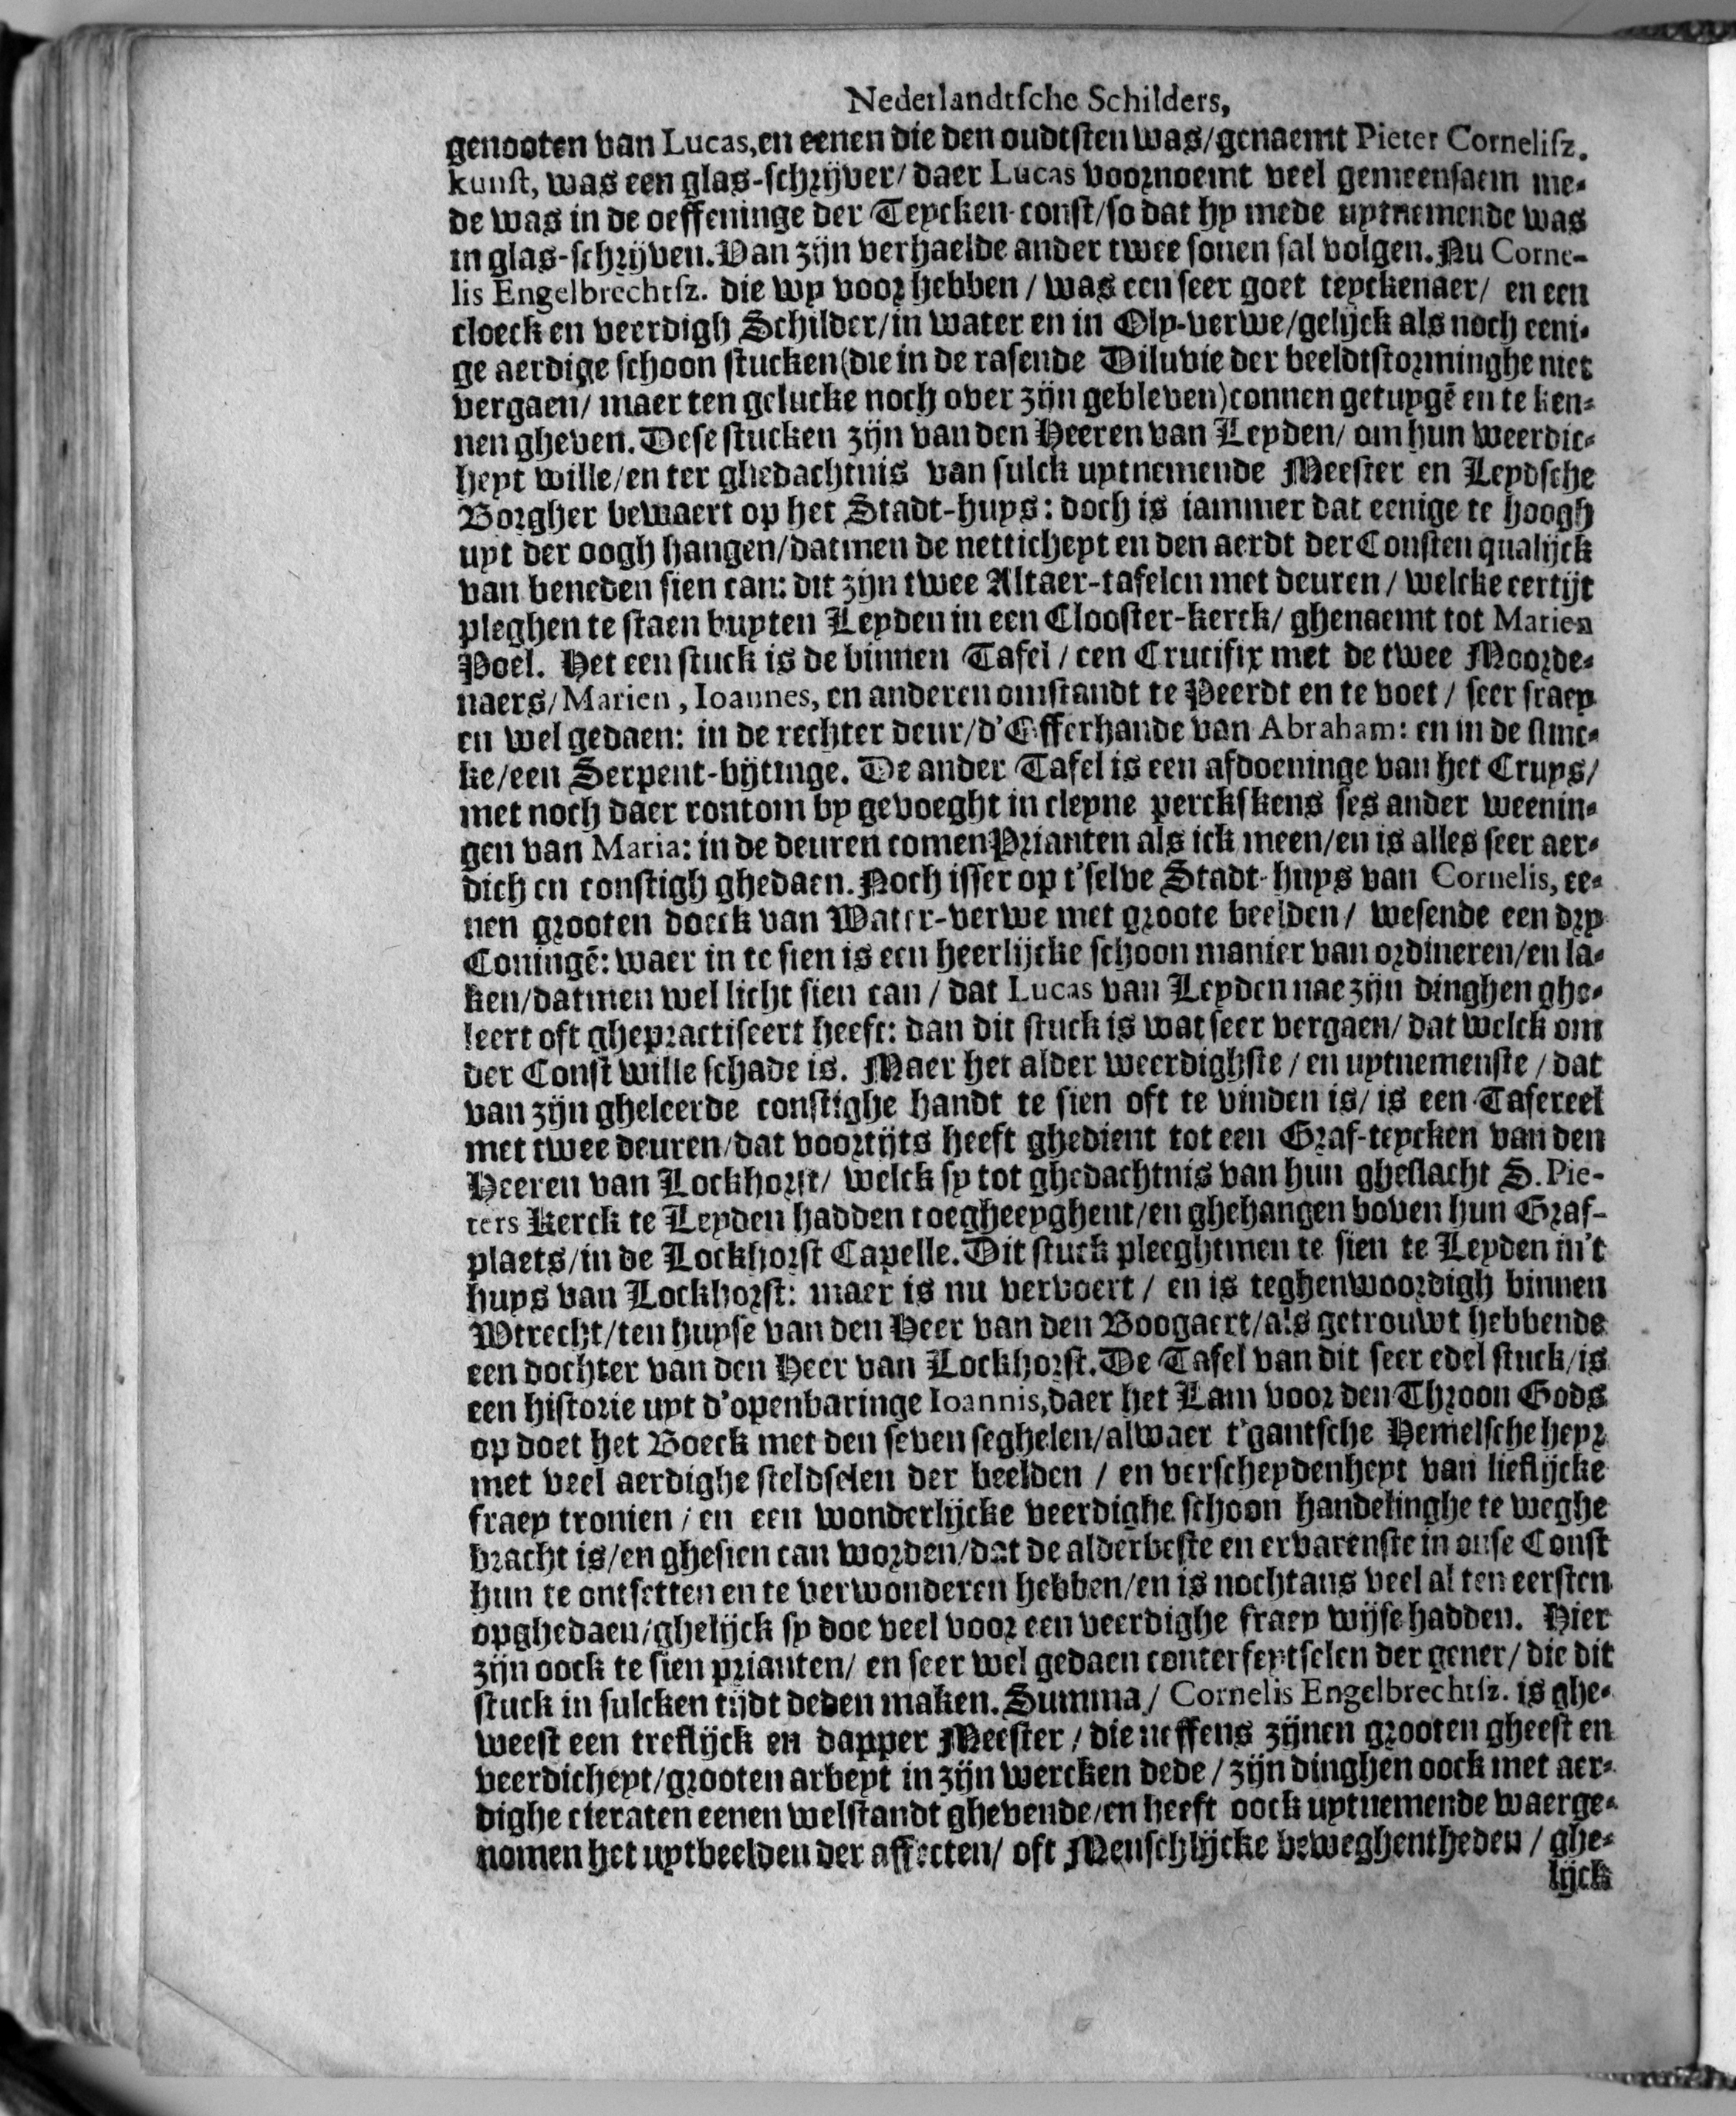 Nederlandtſche Schilders,
genooten van Lucas, en eenen die den oudtſten was/genaemt Pieter Corneliſz.
kunſt, was een glas-ſchrijver/ daer Lucas voornoemt veel gemeenſaem me-
de was in de oeffeninge der Teycken-const/ſo dat hy mede uytnemende was
in glas-ſchrijven. Van zijn verhaelde ander twee ſonen ſal volgen. Nu Corne-
lis Engelbrechtſz. die wy voor hebben / was een ſeer goet teyckenaer/ en een
cloeck en veerdigh Schilder/in water en in Oly-verwe/gelijck als noch eeni-
ge aerdige ſchoon ſtucken(die in de raſende Diluvie der beeldtſtorminghe niet
vergaen/ maer ten gelucke noch over zijn gebleven)connen getuygē en te ken-
nen gheven. Deſe ſtucken zijn van den Heeren van Leyden/ om hun weerdic-
heyt wille/en ter ghedachtnis van ſulck uytnemende Meeſter en Leydſche
Borgher bewaert op het Stadt-huys: doch is iammer dat eenige te hoogh
uyt der oogh hangen/datmen de netticheyt en den aerdt der Conſten qualijck
van beneden ſien can: dit zijn twee Altaer-tafelen met deuren / welcke eertijt
pleghen te ſtaen buyten Leyden in een Clooſter-kerck/ ghenaemt tot Marien
Poel. Het een ſtuck is de binnen Tafel / een Crucifix met de twee Moorde-
naers/Marien, Ioannes, en anderen omſtandt te Peerdt en te voet / ſeer fraey
en wel gedaen: in de rechter deur/d'Offerhande van Abraham: en in de ſlinc-
ke/een Serpent-bijtinge. De ander Tafel is een afdoeninge van het Cruys/
met noch daer rontom by gevoeght in cleyne perckſkens ſes ander weenin-
gen van Maria: in de deuren comen Prianten als ick meen/en is alles ſeer aer-
dich en conſtigh ghedaen. Noch iſſer op t'ſelve Stadt-huys van Cornelis, ee-
nen grooten doeck van Water-verwe met groote beelden/ weſende een dry
Coningē: waer in te ſien is een heerlijcke ſchoon manier van ordineren/en la-
ken/datmen wel licht ſien can / dat Lucas van Leyden nae zijn dinghen ghe-
leert oft ghepractiſeert heeft: dan dit ſtuck is wat ſeer vergaen/ dat welck om
der Conſt wille ſchade is. Maer het alder weerdighſte / en uytnemenſte / dat
van zijn gheleerde conſtighe handt te ſien oft te vinden is/ is een Tafereel
met twee deuren/dat voortijts heeft ghedient tot een Graf-teycken van den
Heeren van Lockhorſt/ welck ſy tot ghedachtnis van hun gheſlacht S. Pie-
ters Kerck te Leyden hadden toegheeyghent/en ghehangen boven hun Graf-
plaets/in de Lockhorſt Capelle. Dit ſtuck pleeghtmen te ſien te Leyden in't
huys van Lockhorſt: maer is nu vervoert / en is teghenwoordigh binnen
Wtrecht/ten huyſe van den Heer van den Boogaert/als getrouwt hebbende
een dochter van den Heer van Lockhorſt. De Tafel van dit ſeer edel ſtuck/is
een hiſtorie uyt d'openbaringe Ioannis, daer het Lam voor den Throon Gods
op doet het Boeck met den ſeven ſeghelen/alwaer t'gantſche Hemelſche heyr
met veel aerdighe ſteldſelen der beelden / en verſcheydenheyt van lieflijcke
fraey tronien / en een wonderlijcke veerdighe ſchoon handelinghe te weghe
bracht is/en gheſien can worden/dat de alderbeſte en ervarenſte in onſe Conſt
hun te ontſetten en te verwonderen hebben/en is nochtans veel al ten eerſten
opghedaen/ghelijck ſy doe veel voor een veerdighe fraey wijſe hadden. Hier
zijn oock te ſien prianten/ en ſeer wel gedaen conterfeytſelen der gener/ die dit
ſtuck in ſulcken tijdt deden maken. Summa/ Cornelis Engelbrechtſz. is ghe-
weeſt een treflijck en dapper Meeſter / die neffens zijnen grooten gheeſt en
veerdicheyt/grooten arbeyt in zijn wercken dede / zijn dinghen oock met aer-
dighe cieraten eenen welſtandt ghevende/en heeft oock uytnemende waerge-
nomen het uytbeelden der affecten/ oft Menſchlijcke beweghentheden / ghe-
lijck